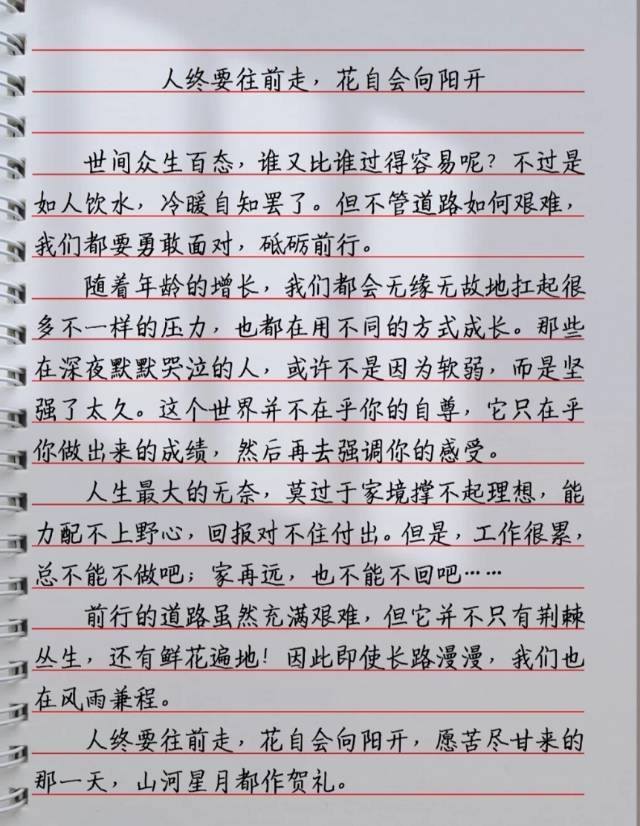 人终要往前走，花自会向阳开
世间众生百态，谁又比谁过得容易呢？不过是
如人饮水，冷暖自知罢了。但不管道路如何艰难，
我们都要勇敢面对，砥砺前行。
随着年龄的增长，我们都会无缘无故地扛起很
多不一样的压力，也都在用不同的方式成长。那些
在深夜默默哭泣的人，或许不是因为软弱，而是坚
强了太久。这个世界并不在乎你的自尊，它只在乎
你做出来的成绩，然后再去强调你的感受。
人生最大的无奈，莫过于家境撑不起理想，能
力配不上野心，回报对不住付出。但是，工作很累，
总不能不做吧；家再远，也不能不回吧……
前行的道路虽然充满艰难，但它并不只有荆棘
丛生，还有鲜花遍地！因此即使长路漫漫，我们也
在风雨兼程。
人终要往前走，花自会向阳开，愿苦尽甘来的
那一天，山河星月都作贺礼。